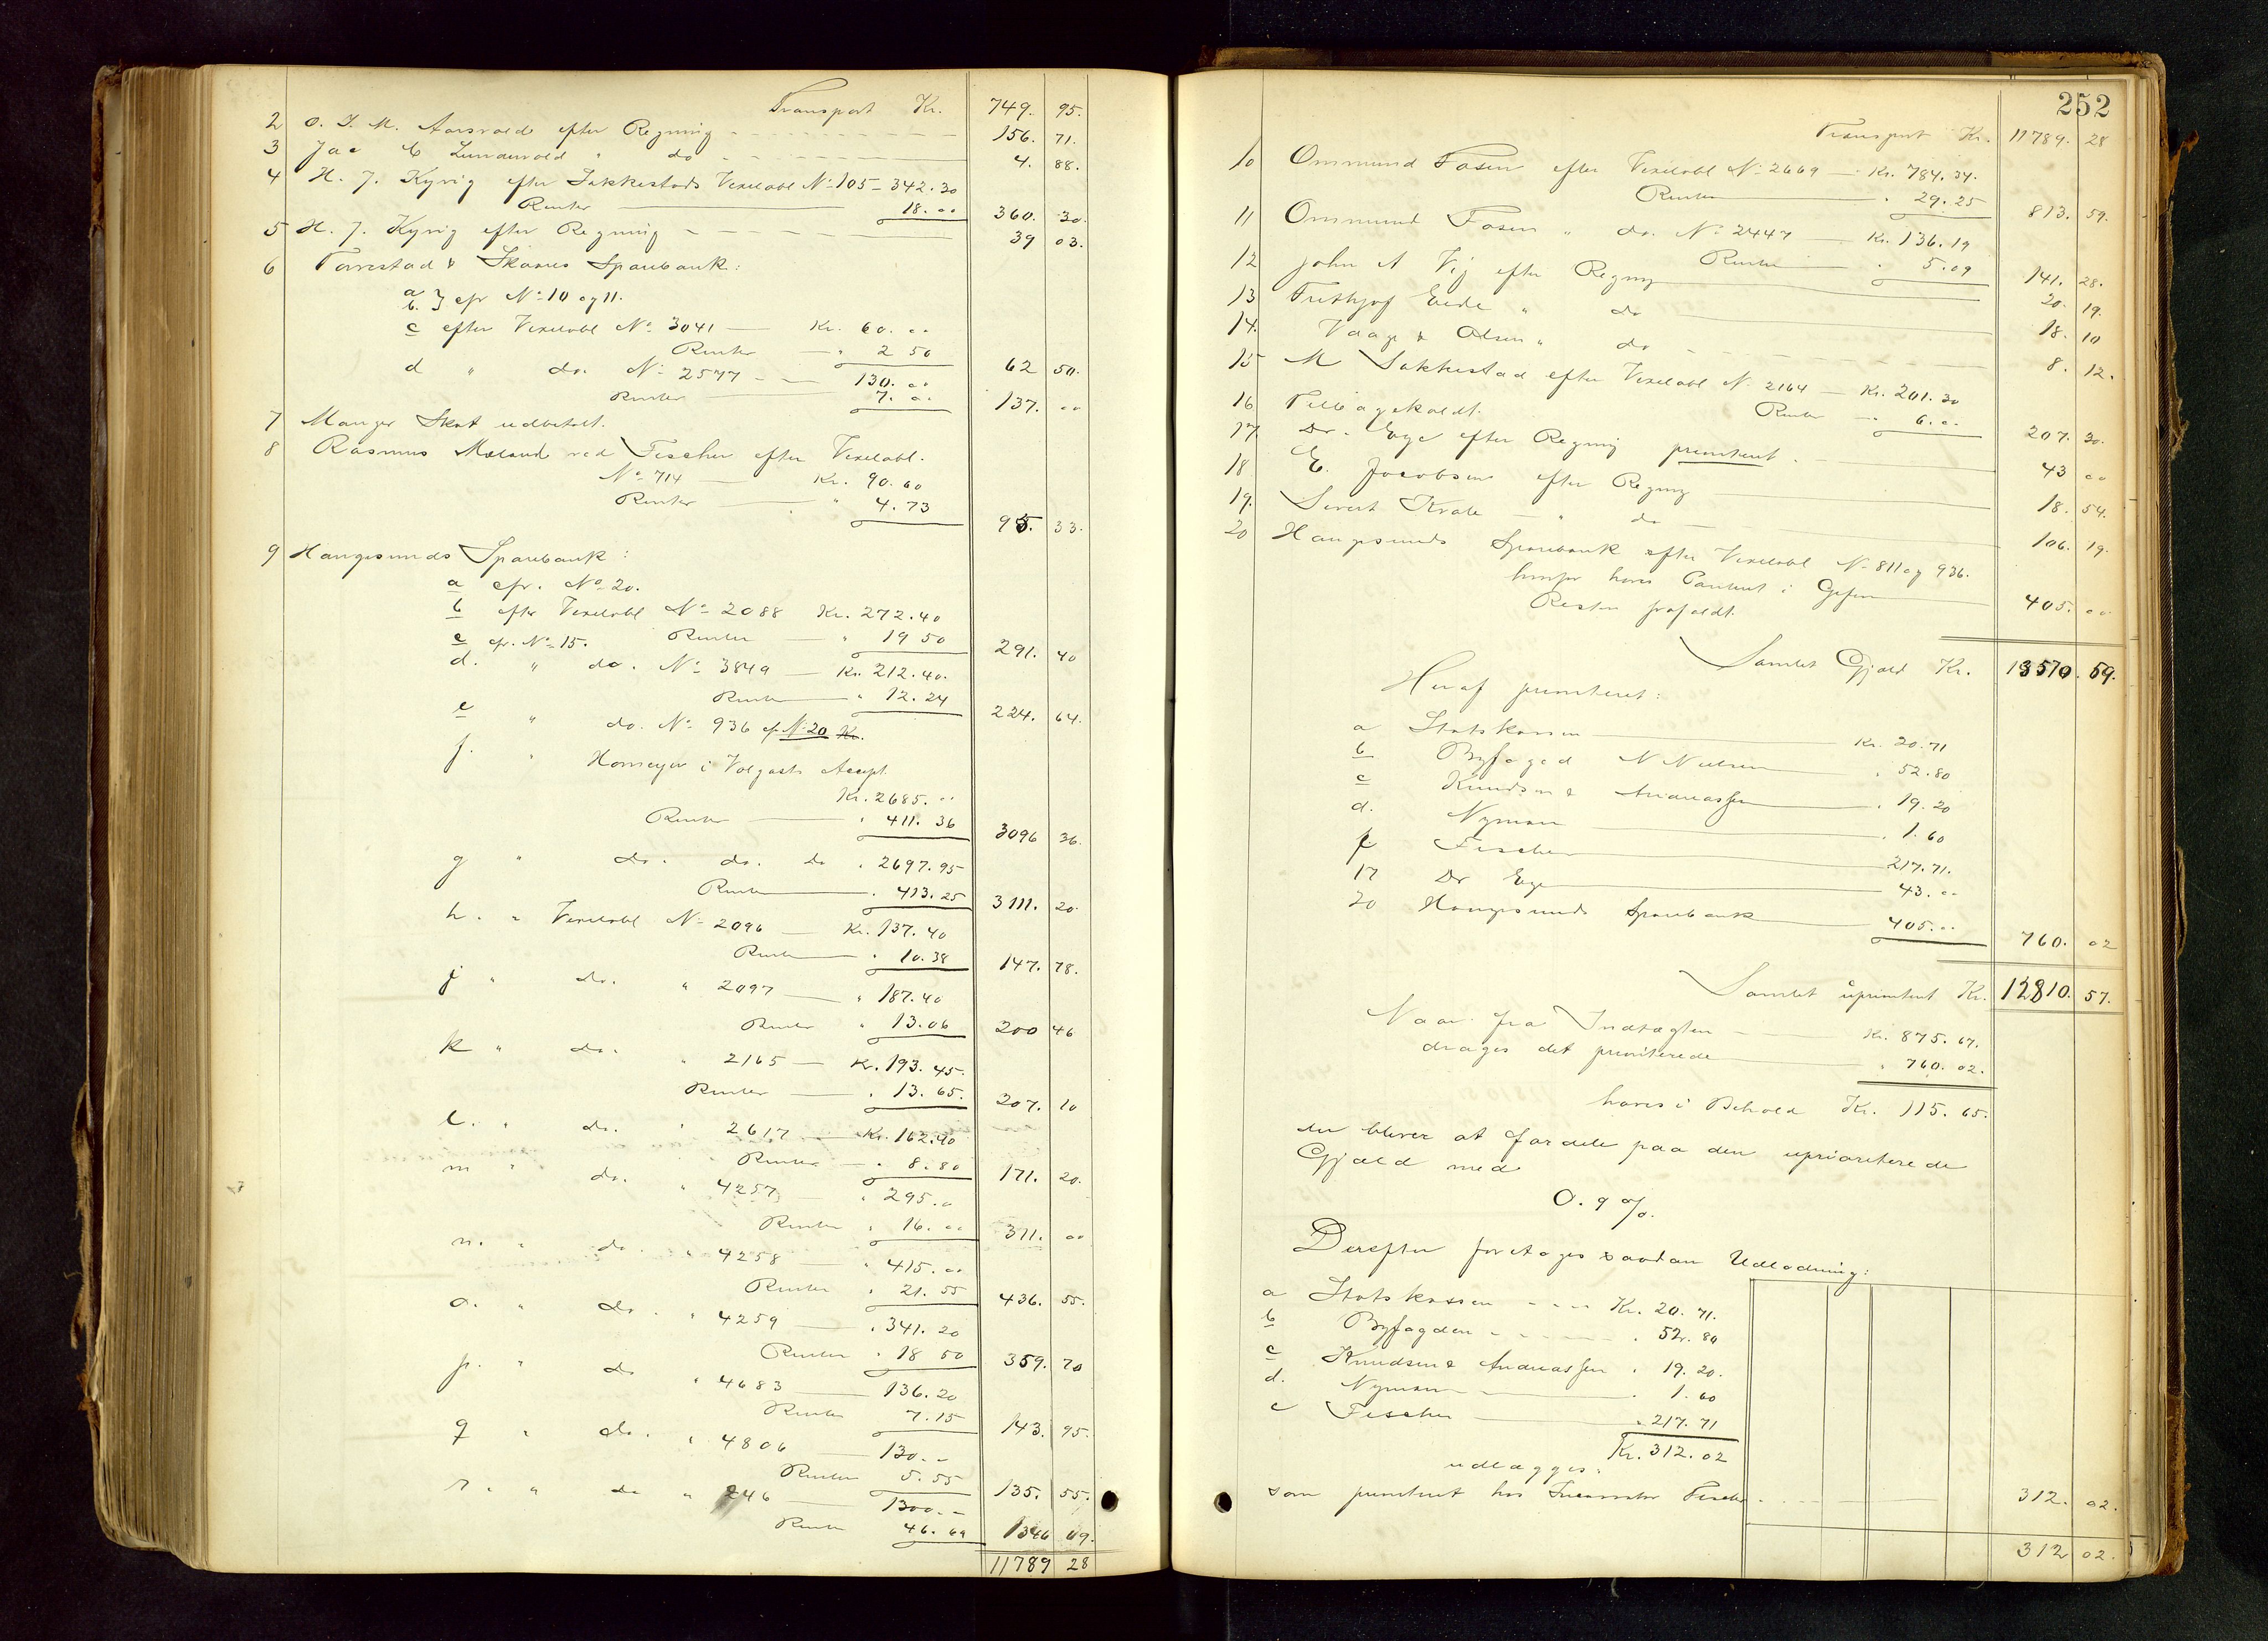 Transport Kr. 749. 95.
2 O. T. M. Aarsvold efter Regning 156. 71.
3 Jac C Lundevold " do 4. 88.
4 H. J. Kyvig efter Sakkestads Vexelobl No 105 - 342.30
Renter 18.00 360. 30.
5 H. J. Kyvig efter Regning 39 03.
6 Torvestad & Skaares Sparebank:
a
b. } cfr No 10 og 11.
c efter Vexelobl No 3041 — Kr. 60.00
Renter " 2 50 62 50.
d " do. No 2577 — 130.00
Renter 7.00 137. 00
7 Mauger Skat udbetalt.
8 Rasmus Mæland ved Fischer efter Vexelobl.
No 714 — Kr. 90.60
Renter " 4.73 95. 33.
9 Haugesunds Sparebank:
a cfr. No 20.
b efter Vexelobl No 2088 Kr. 272.40
Renter — " 19 50 291. 40
c cfr. No 15.
d. " do. No 3849 — Kr. 212.40.
Renter " 12.24 224. 64.
e " do. No 936 cfr No 20 Kr.
f. " Homeyer i Volgasts Accept.
Kr. 2685.00
Renter " 411. 36 3096 36.
g " do. do. do " 2697.95
Renter " 413.25 3111. 20.
h. " Vexelobl No 2096 — Kr. 137.40
Renter " 10.38 147. 78.
j " do. " 2097 — " 187.40
Renter " 13.06 200 46
k " do. " 2165 — Kr. 193.45.
Renter " 13.65. 207. 10
l. " do. " 2617 — Kr. 162.40
Renter — " 8.80 171. 20.
m " do. " 4257 — " 295.00
Renter " 16.00 311. 00
n. " do. " 4258 — " 415.00
Renter " 21.55 436. 55.
o. " do. " 4259 — " 341.20
Renter " 18 50 359. 70
p. " do " 4683 — 136.20
Renter 7.15 143. 95.
q " do. " 4806 — 130.00
Renter 5.55 135. 55.
r. " do " 246 — 1300.00
Renter 46.69 1346 69.
11789 28
252
Transport Kr. 11789. 28
10 Ommund Fosen efter Vexelobl No 2669 — Kr. 784.34.
Renter " 29.25 813. 59.
11 Ommund Fosen " do. No 2447 — Kr. 136.19
Renter " 5.09 141. 28.
12 John A Vij efter Regning 20. 19.
13 Frithjof Eide " do 18. 10
14. Vaage & Olsen " do 8. 12.
15 M Sakkestad efter Vexelobl No 2164 — Kr. 201.30
Renter " 6.00 207. 30.
16 Tilbagekaldt.
17. Dr. Eege efter Regning prioriteret. 43 00
18 E. Jacobsen efter Regning 18. 54.
19. Sivert Krale — " do — 106. 19.
20 Haugesunds Sparebank efter Vexelobl No 811 og 936.
hvorfor haves Panteret i 405. 00
Resten frafaldt.
Samlet Gjæld Kr. 13570. 59.
Heraf prioriteret:
a Statskassen — Kr. 20.71
b Byfoged N Nielsen " 52.80
c Knudsen & Andreassen " 19.20
d. Nyman " 1.60
f Fischer 217.71.
17 Dr Eege 43.00
20 Haugesunds Sparebank 405.00 760. 02
Samlet uprioritert Kr. 12810. 57.
Naar fra Indtægten — Kr. 875.67.
drages det prioriterede " 760.02.
haves i Behold Kr. 115.65.
der bliver at fordele paa den uprioriterede
Gjæld med
0.9 %.
Derefter foretages saadan Udlodning:
a Statskassen — Kr. 20.71.
b Byfogden " 52.80
c Knudsen & Andreassen " 19.20.
d. Nyman — " 1.60
e Fischer — " 217.71
Kr. 312.02
udlægges:
som prioriteret hos Incassator Fischer 312. 02.
312 02.